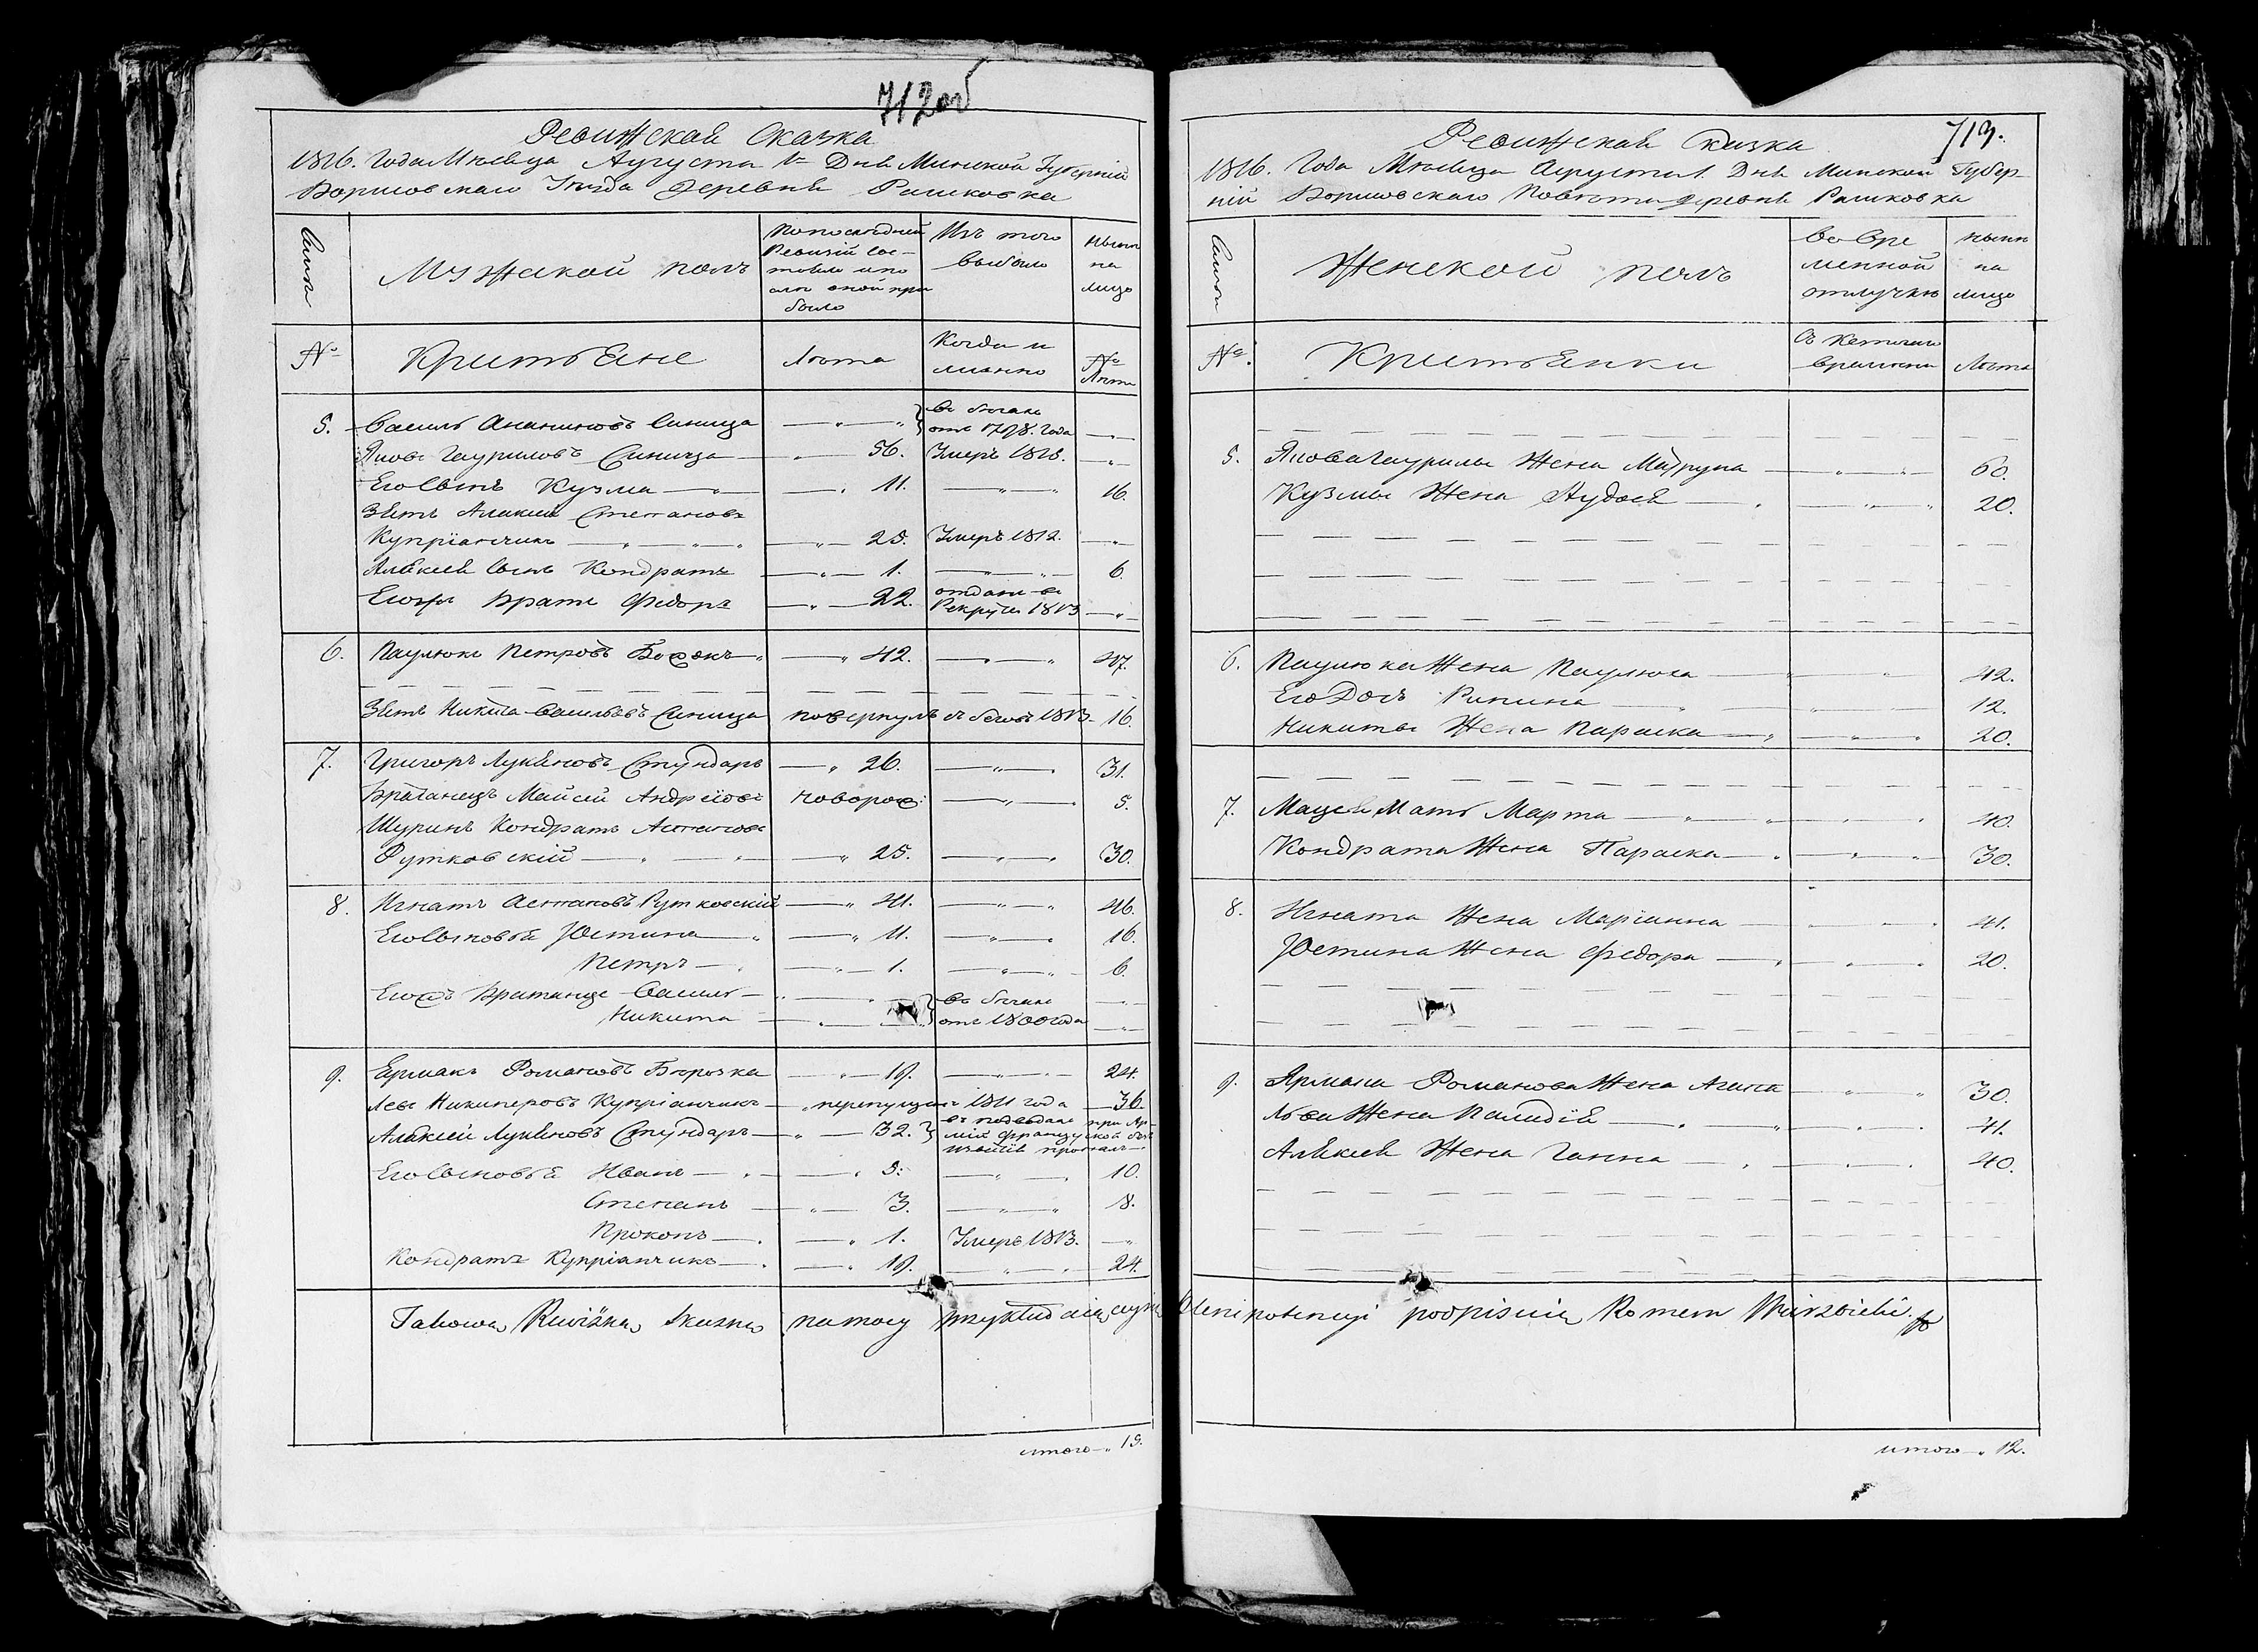 712 об
Ревижская Сказка
1816. Года Месяца Аугуста 1го Дня Минской Губерніи
Борисовскаго Уезда деревня Рашковка
Мужской полъ
По последней Ревизіи состояло и после оной прибыло
Изъ того выбыло
Ныне на лицо
№
Крестьяне
Лѣта
Когда и имянно
№ Лѣта
5. Василь Ананиновъ Синица — въ бегахъ отъ 1798. года —
Яковъ Гауриловъ Синица — 56. Умеръ 1815. —
Его Сынъ Кузма — 11. — 16.
Зять Алексей Степановъ
Купріанчикъ — 25. Умеръ 1812. —
Алексея Сынъ Кондратъ — 1. — 6.
Его братъ Федоръ — 22. отданъ въ Рекруты 1813 —
6. Паулюкъ Петровъ — 42. — 47.
Зять Никита Васильевъ Синица повернулъ съ беговъ 1813 16.
7. Григоръ Лукяновъ Стундаръ — 26. — 31.
Братанецъ Майсей Андреювъ новорож: — 5.
Шуринъ Кондратъ Астаповъ
Рутковскій — 25. — 30.
8. Игнатъ Астаповъ Рутковскій — 41. — 46.
Его Сыновья Юстинъ — 11. — 16.
Петръ — 1. — 6.
Братанцы Василь — въ бегахъ —
Никита — отъ 1800 года —
9. Ермакъ Романовъ Бирочка — 19. — 24.
Левъ Никиперовъ Купріанчикъ — перепущенъ 1811 года — 36.
Алексей Лукяновъ Стундаръ — 32. въ подводахъ при Арміи Французской безъ пропалъ
Его Сыновья Иванъ — 5. — 10.
Степанъ — 3. — 8.
Прокопъ — 1. Умеръ 1813. —
Кондратъ Купріанчикъ — 19. — 24.
итого — 15.
713.
Ревижская Сказка
1816. Года Месяца Аугуста 1. Дня Минской Губер-
ніи Борисовскаго Повѣта деревня Рашковка
Женской полъ
Во временной отлучкѣ
Ныне на лицо
№.
Крестьянки
времени
Лѣта
5. Якова Гаурилы Жена Матруна — 60.
Кузмы Жена Аудося — 20.
6. Паулюка Жена Паулюха — 42.
Его Дочь Рипина — 12.
Никиты Жена Параска — 20.
7. Мацея Мать Марта — 40.
Кондрата Жена Параска — 30.
8. Игната Жена Маріанна — 41.
Юстина Жена Федора — 20.
9. Ярмака Романова Жена Агапа — 30.
Льва Жена Паладія — 41.
Алексея Жена Ганна — 40.
итого — 12.
Takową Rewizką Skazkę na mocy plenipotencyi podpisuię Roman Wierzbicki